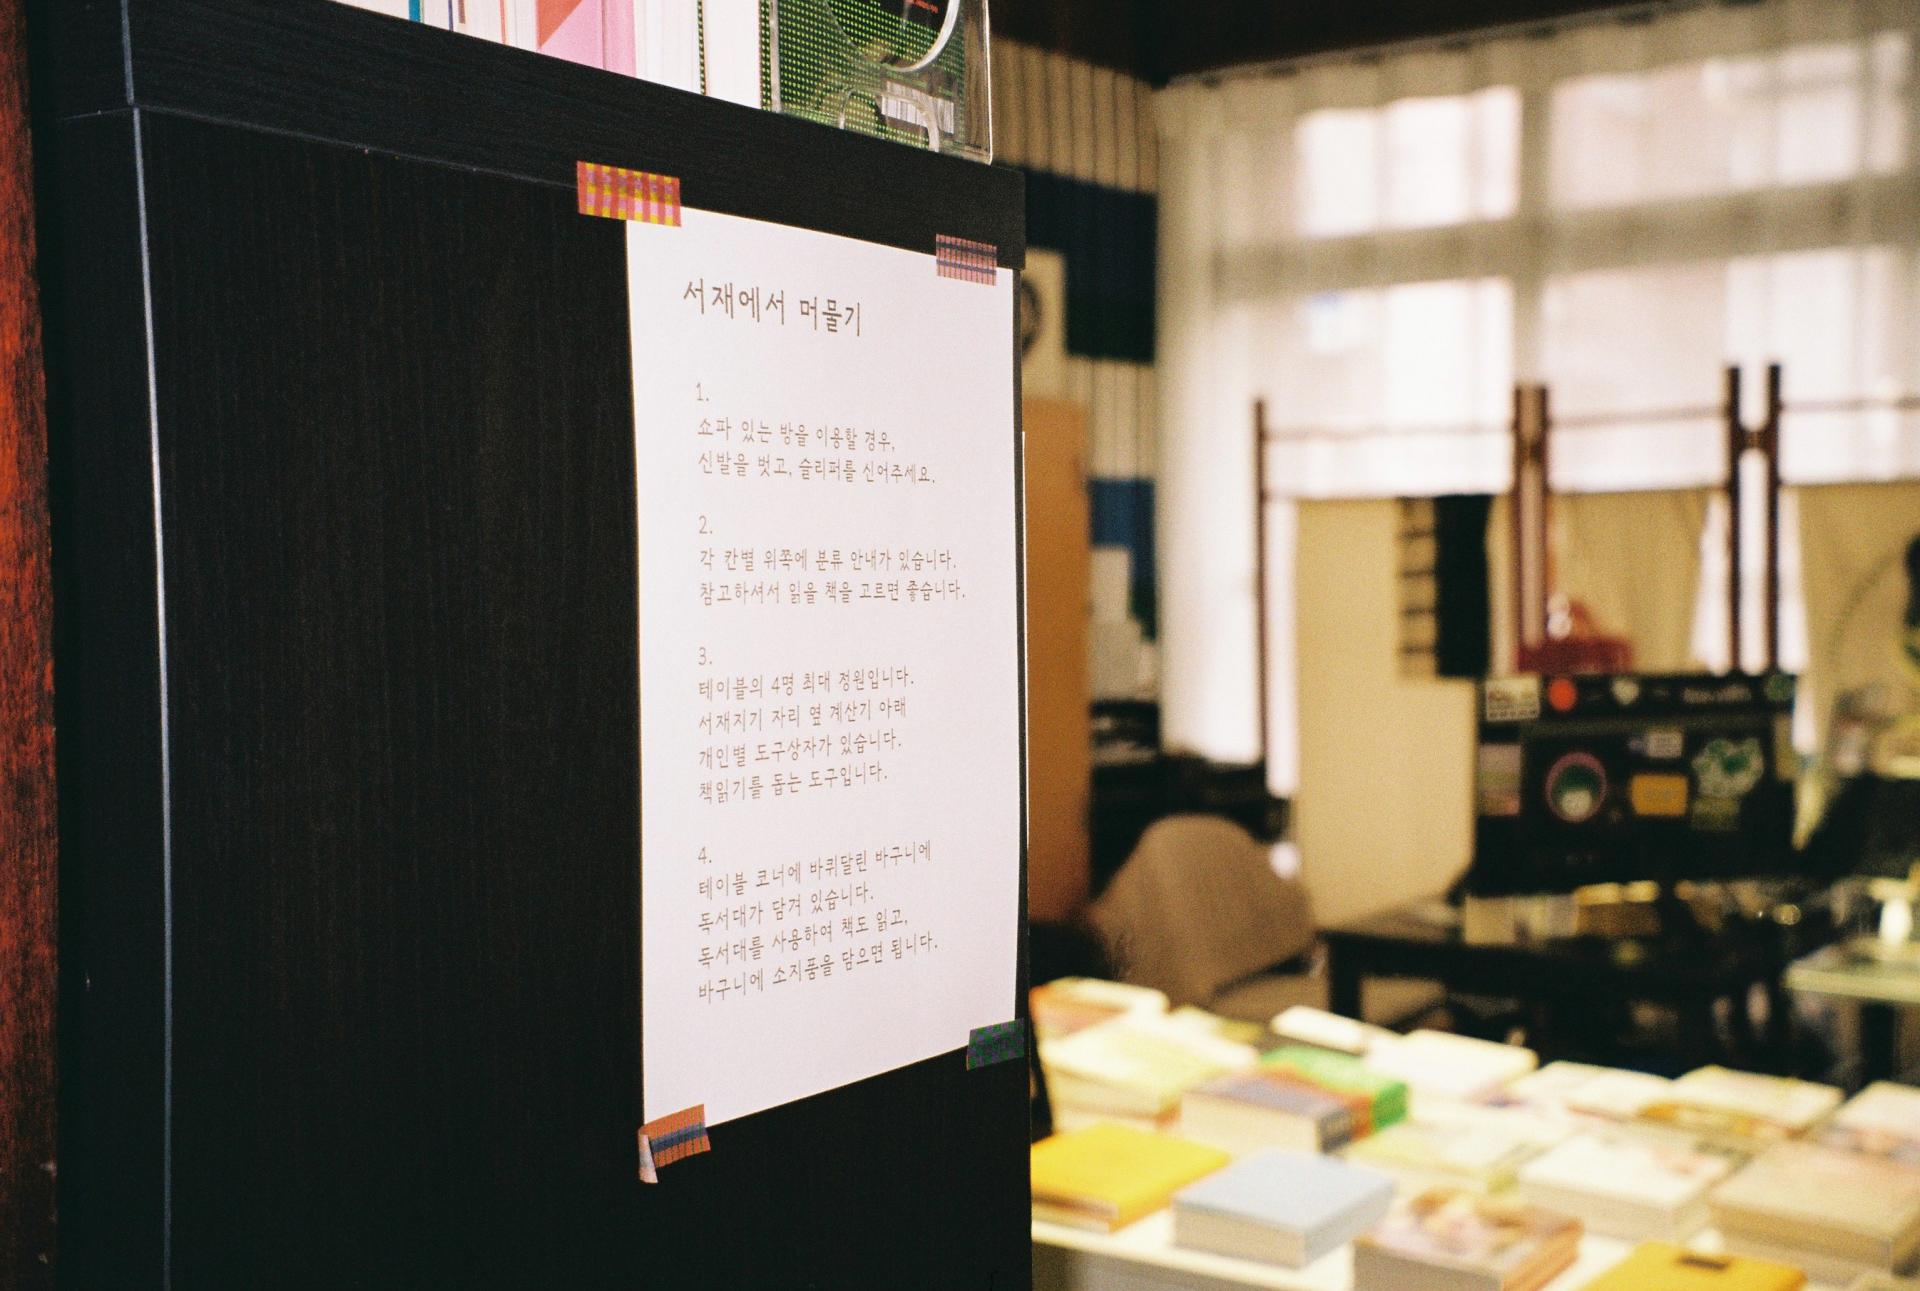 서재에서 머물기
1.
쇼파 있는 방을 이용할 경우,
신발을 벗고, 슬리퍼를 신어주세요.
2.
각 칸별 위쪽에 분류 안내가 있습니다.
참고하셔서 읽을 책을 고르면 좋습니다.
3.
테이블의 4명 최대 정원입니다.
서재지기 자리 옆 계산기 아래
개인별 도구상자가 있습니다.
책읽기를 돕는 도구입니다.
4.
테이블 코너에 바퀴달린 바구니에
독서대가 담겨 있습니다.
독서대를 사용하여 책도 읽고,
바구니에 소지품을 담으면 됩니다.